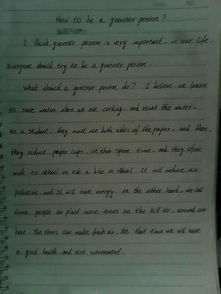 How to be a greener person?
I think greener person is very important in our life.
Everyone should try to be a greener person.
What should a greener person do? I believe we learn
to save water when we are cooking. and reuse the water.
As a student, they must use both sides of the paper. and then,
they reduce paper cups. in their spare time. and they often
walk to school or ride a bike to school. It will reduce air
pollution. and it will save energy. On the other hand, we can
home. people be plant more trees on the hill or around our
here. The trees can make fresh air. At that time we will have
a good health and nice environment.